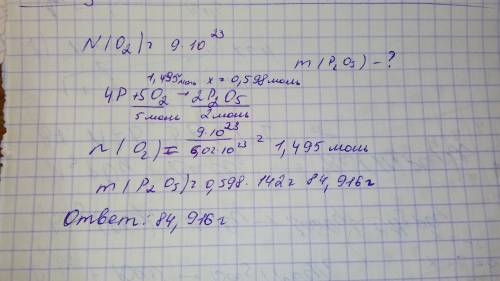 N(O₂) = 9·10²³
m(P₂O₅) - ?
1,495моль x = 0,598моль
4P + 5O₂ → 2P₂O₅
5 моль 2 моль
n(O₂) = 9·10²³ / 6,02·10²³ = 1,495 моль
m(P₂O₅) = 0,598 · 142 = 84,916 г
Ответ: 84,916 г